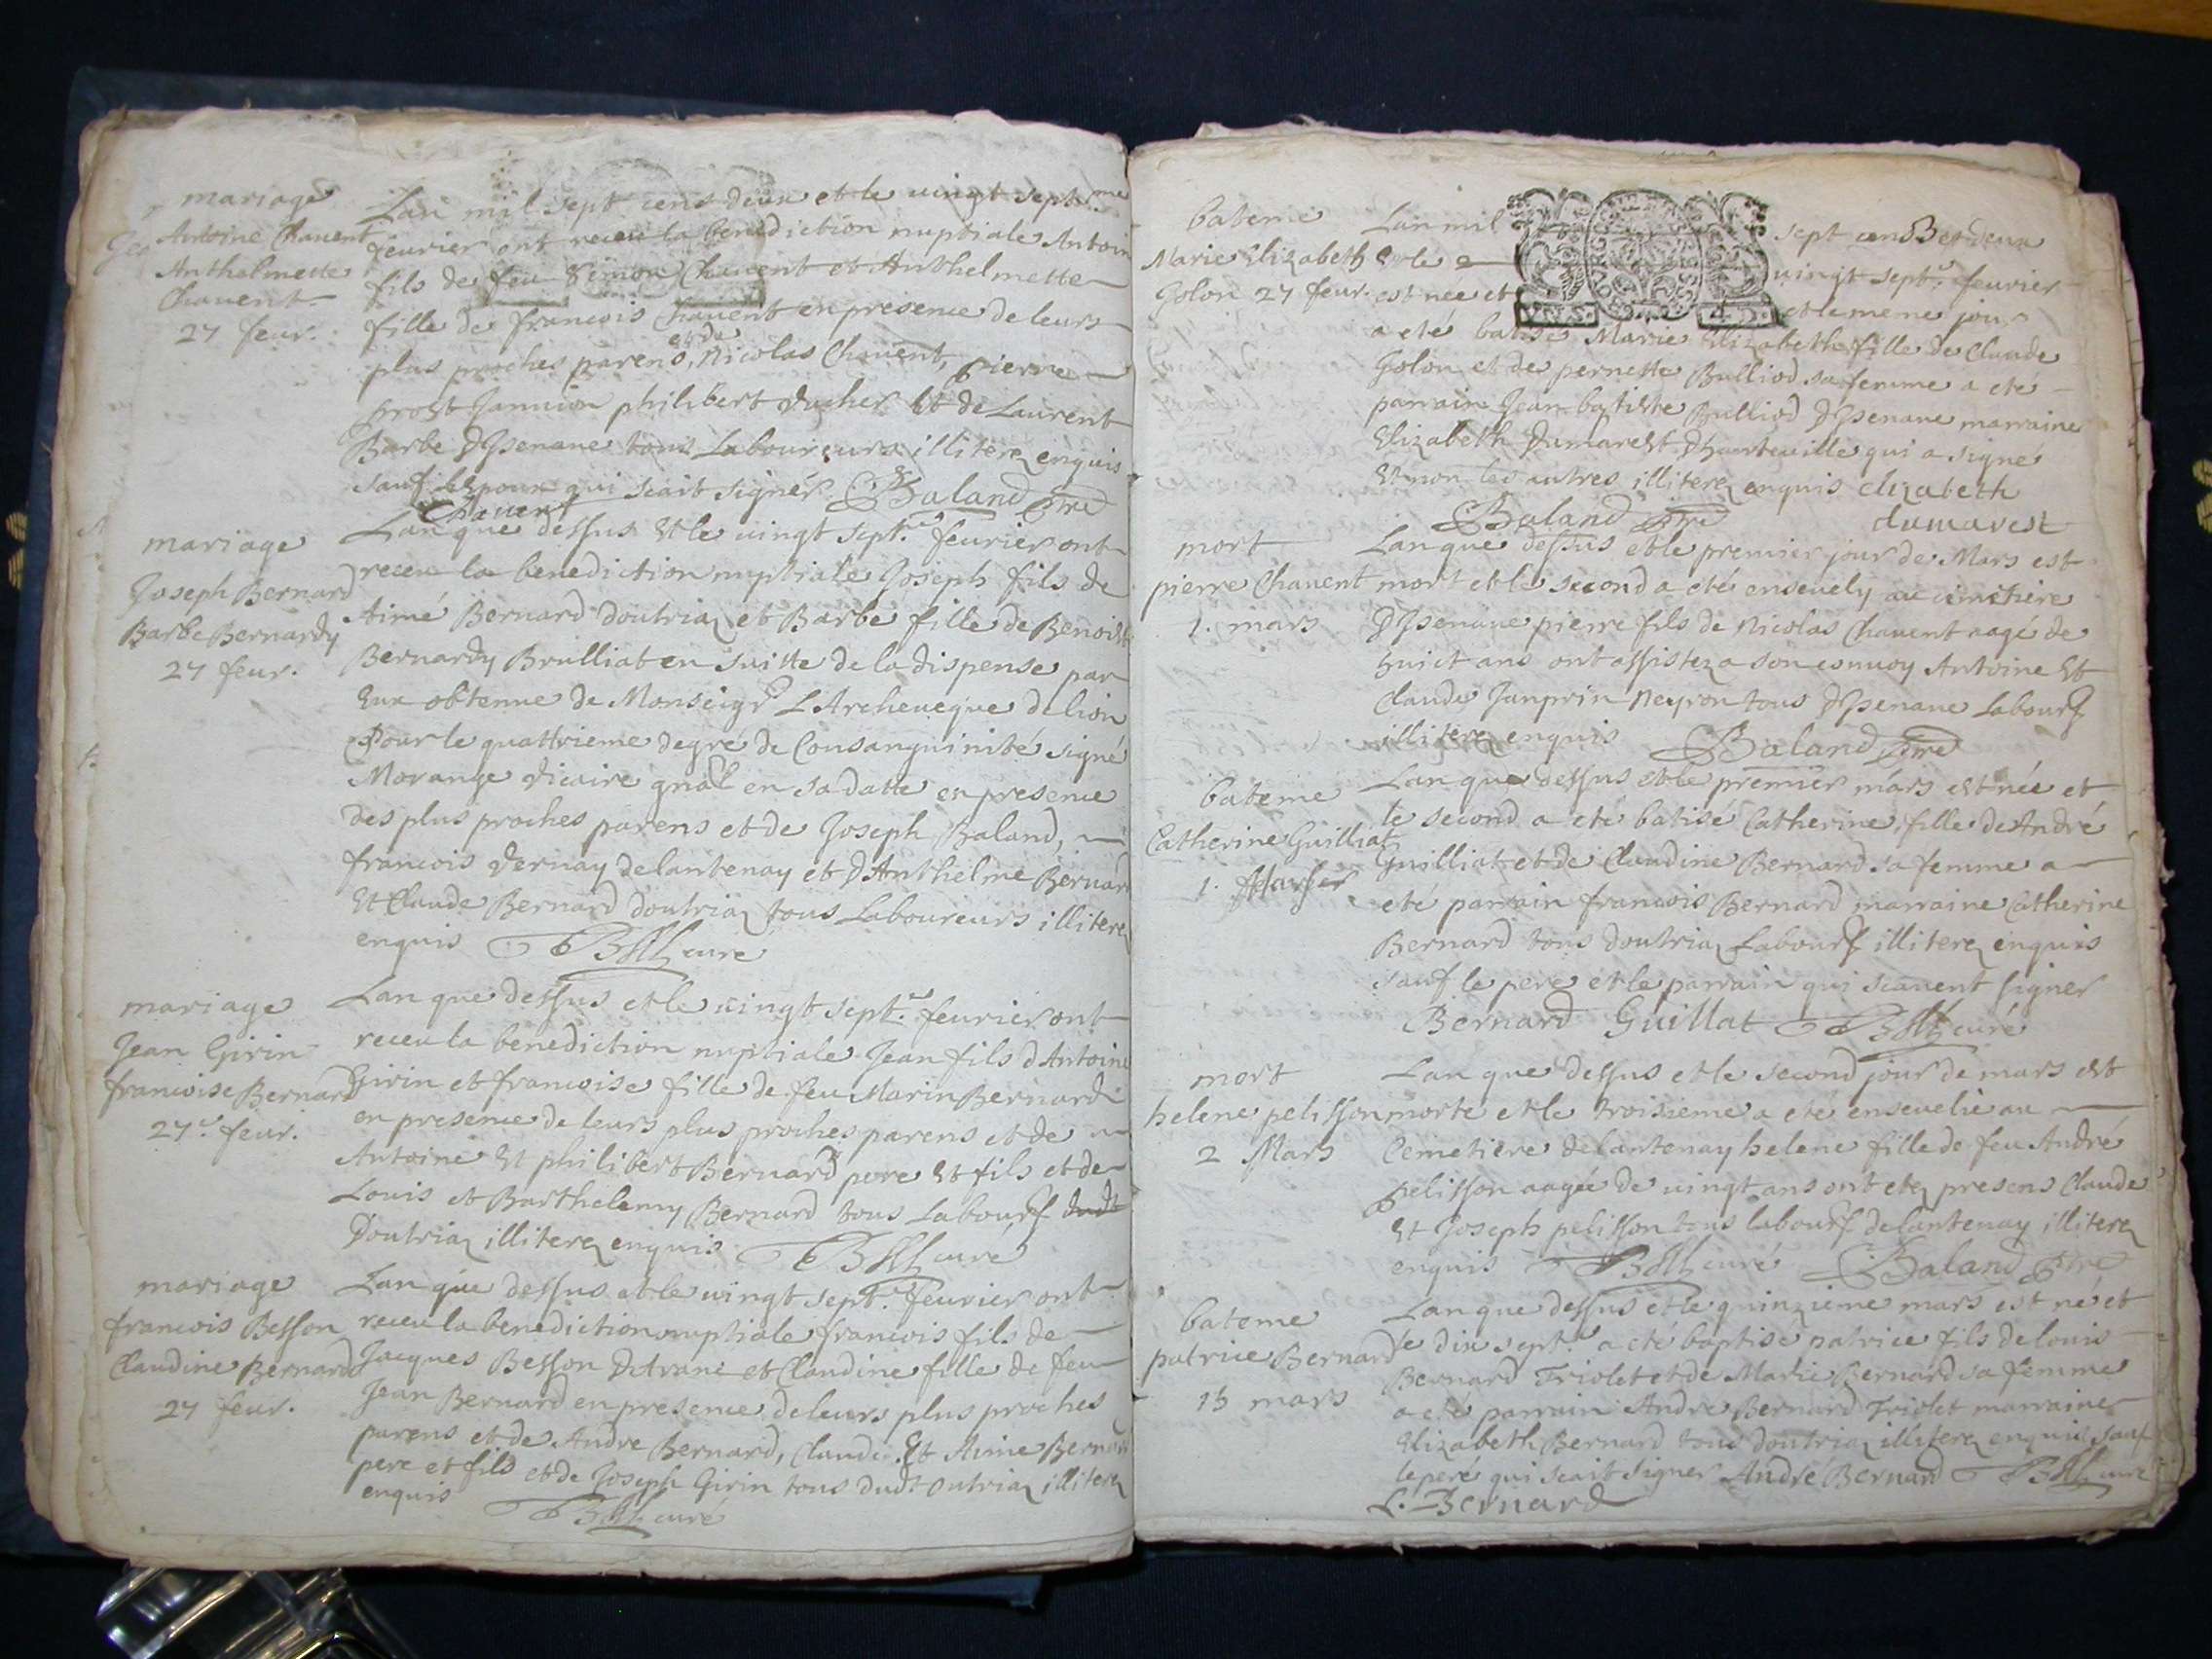 mariage
Antoine Chauent
Anthelmette
Chauent
27 feur.
Lan mil sept cens deux et le uingt sept.me
feurier ont receu la benediction nuptiale Antoin
fils de feu Simon Chauent et Anthelmette
fille de francois Chauent en presence de leurs
plus proches parens, et de Nicolas Chauent, pierre
prost Jannion philibert Ducher Et de Laurent
Barbe DIsenaue tous Laboureurs illiterez enquis
sauf lespoux qui scait signér Baland ptre
Chauent
mariage
Joseph Bernard
Barbe Bernardy
27 feur.
Lan que dessus Et le uingt sept.e feurier ont
receu la benediction nuptiale Joseph fils de
Aimé Bernard doutriaz et Barbe fille de Benoist
Bernardy Brulliat en suitte de la dispense par
Eux obtenue de Monseigr LArcheueque de lion
Pour le quattrieme degré de Consanguinité signé
Morange vicaire gnâl en sa datte en presence
des plus proches parens et de Joseph Baland,
francois Vernay delantenay et DAnthelme Bernard
Et Claude Bernard doutriaz tous Laboureurs illiterez
enquis curé
mariage
Jean Girin
francoise Bernard
27.e feur.
Lan que dessus et le uingt sept.e feurier ont
receu la benediction nuptiale Jean fils dAntoine
Girin et francoise fille de feu Marin Bernard
en presence de leurs plus proches parens et de
Antoine Et philibert Bernard pere Et fils et de
Louis et Barthelemy Bernard tous Labourf dudt
Doutriaz illiterez enquis curé
mariage
francois Besson
Claudine Bernard
27 feur.
Lan que dessus et le uingt sept.e feurier ont
receu la benediction nuptiale francois fils de
Jacques Besson Detrane et Claudine fille de feu
Jean Bernard en presence de leurs plus proches
parens et de Andre Bernard, Claude Et Aime Bernard
pere et fils et de Joseph Girin tous dudt outriaz illiterez
enquis curé
bateme
Marie Elizabeth
Golon 27 feur.
Lan mil sept cens et deux
Et le uingt sept.e feurier
est nee et et le meme jour
a eté batisé Marie Elizabeth fille de Claude
Golon et de pernette Bulliod sa femme a eté
parrain Jean batiste Bulliod DIsenaue marraine
Elizabeth Dumarest Dhauteuille qui a signe
Et non les autres illiterez enquis elizabeth
Baland ptre dumarest
mort
pierre Chauent
1. mars
Lan que dessus et le premier jour de Mars est
mort et le second a eté enseuely au cimitiere
DIsenaue pierre fils de Nicolas Chauent aagé de
huict ans ont assistez a son conuoy Antoine Et
Claude Janprin Neyron tous DIsenaue Labourf
illiterez enquis Baland ptre
bateme
Catherine Guilliat
1.
Lan que dessus et le premier mars est née et
le second a eté batisé Catherine fille de André
Guilliat et de Claudine Bernard sa femme a
eté parrain francois Bernard marraine Catherine
Bernard tous doutriaz Labourf illiterez enquis
sauf le pere et le parrain qui scauent signer
Bernard Guillat curé
mort
helene pelisson
2 Mars
Lan que dessus et le second jour de mars est
morte et le troisieme a eté enseuelie au
Cemetiere delantenay helene fille de feu André
pelisson aagée de uingt ans ont etez presens Claude
Et Joseph pelisson tous labourf delantenay illiterez
enquis curé Baland ptre
bateme
patrice Bernard
15 mars
Lan que dessus et le quinzieme mars est né et
le dix sept.e a eté baptisé patrice fils de louis
Bernard Triolet et de Marie Bernard sa femme
a eté parrain André Bernard Triolet marraine
Elizabeth Bernard tous doutriaz illiterez enquis sauf
le peré qui scait signer André Bernard curé
L. Bernard